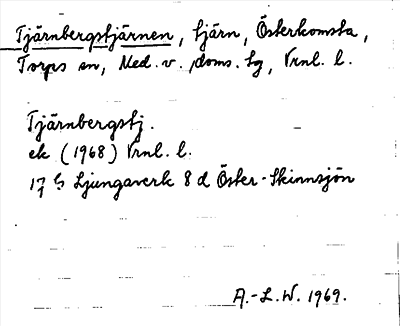 Tjärnbergstjärnen, tjärn, Österkomsta,
Torps sn, Med. v. doms. tg, Vrnl. l.
Tjärnbergstj.
ek (1968) Vrnl. l.
17 G Ljungaverk 8 d Öster-Skinnsjön
A.-L.W. 1969.